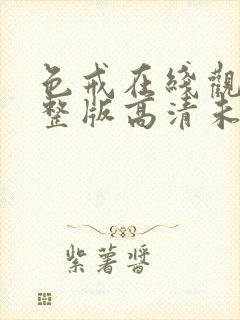 色戒在线觀
整版高清未
紫薯醬